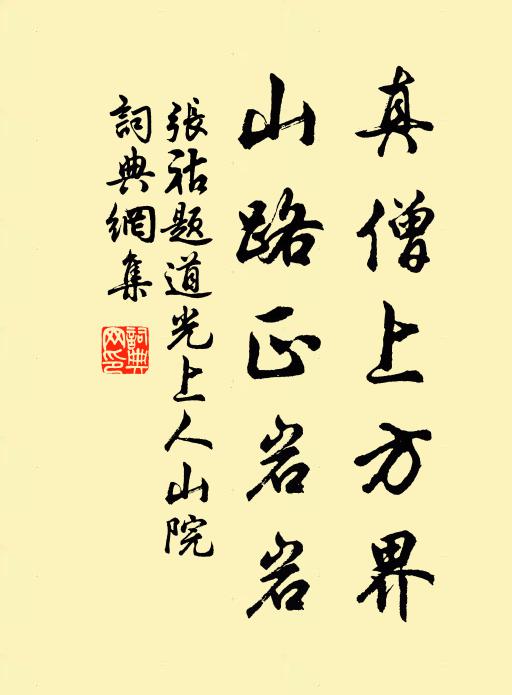 真僧上方界
山路正岩岩
張祜題道光上人山院
詞典網集
詞典网印